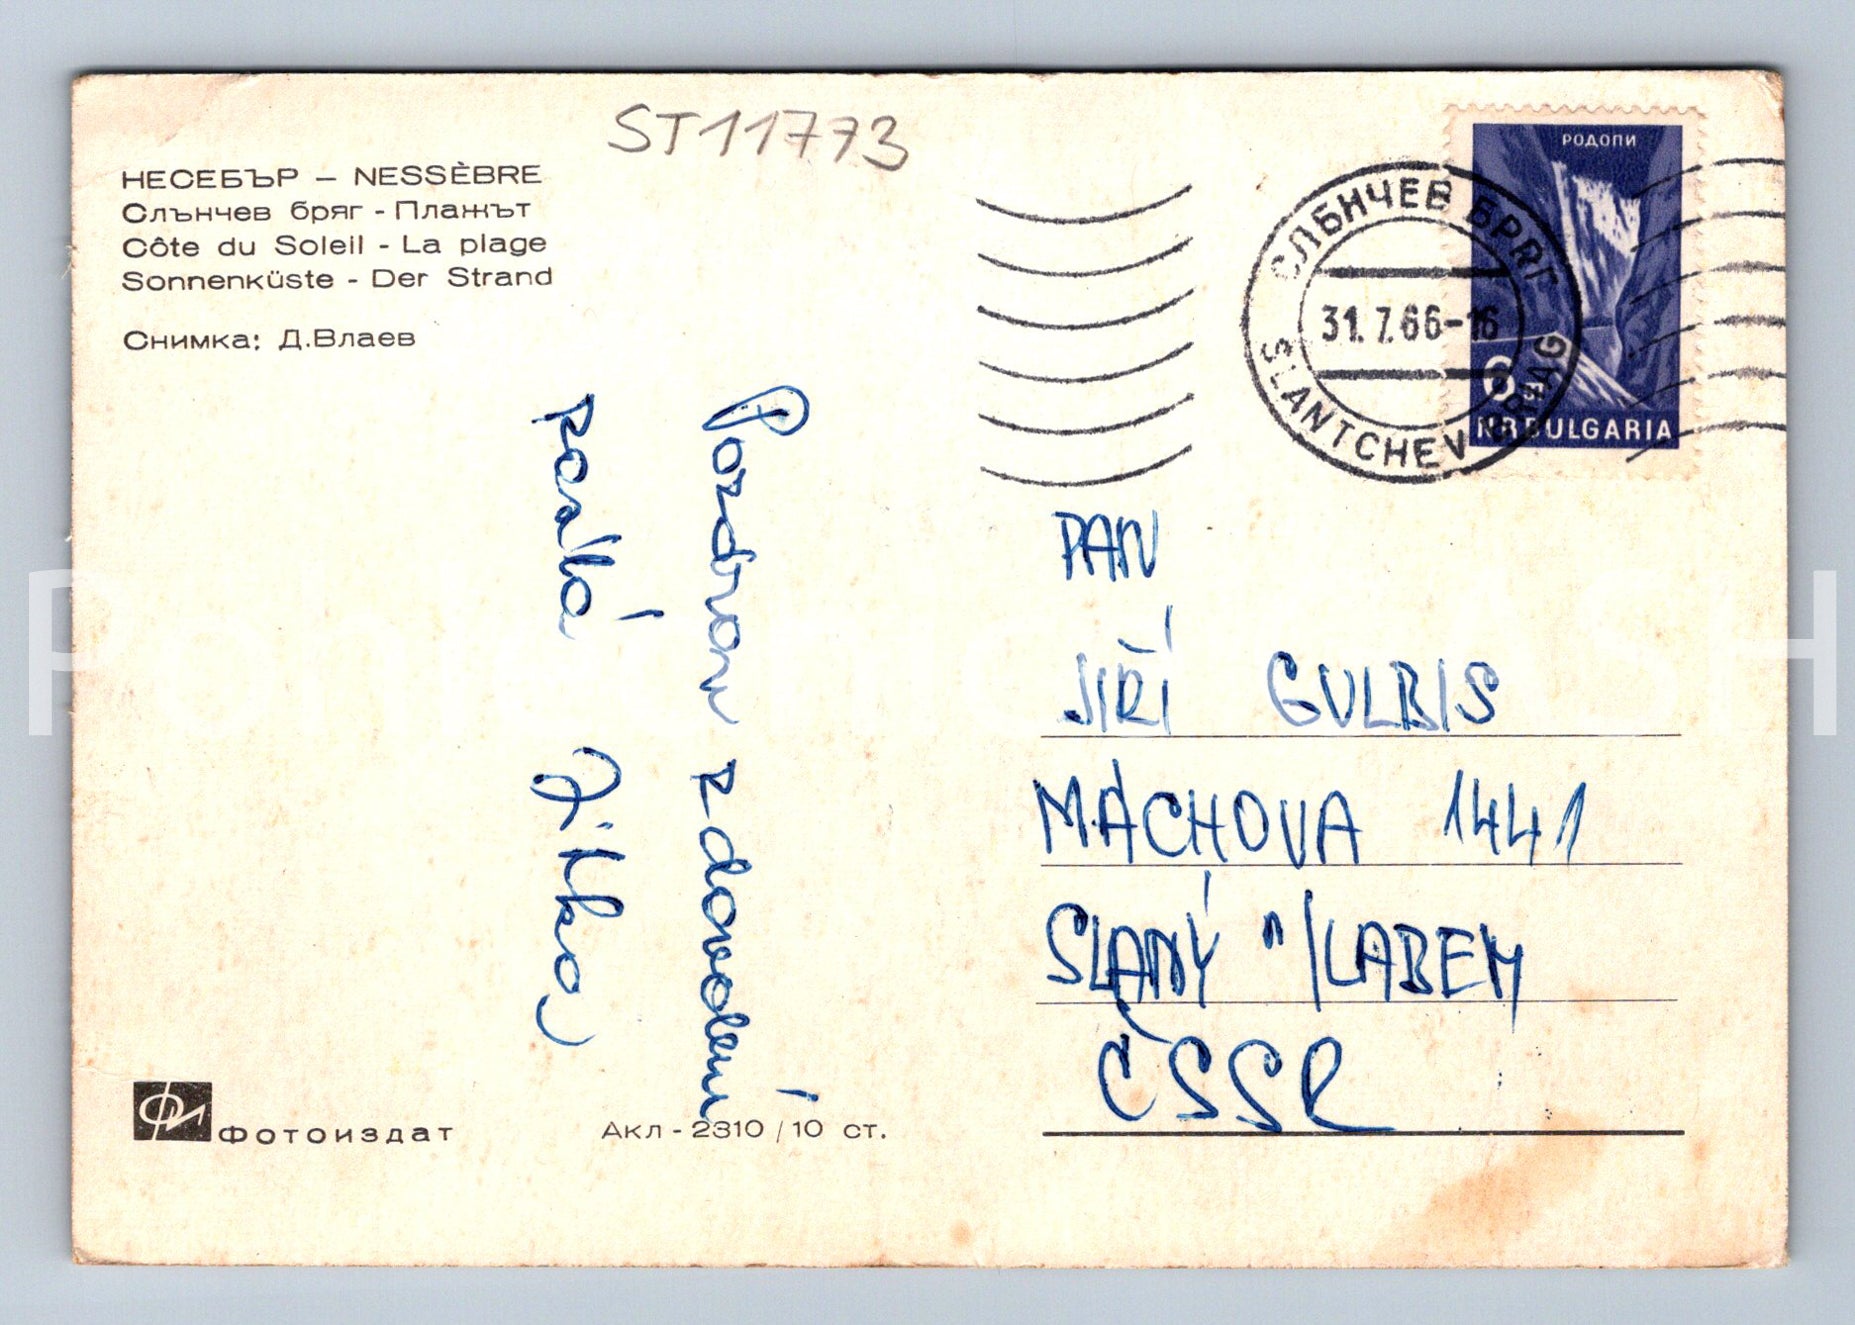 ST11773
НЕСЕБЪР – NESSÈBRE
Слънчев бряг - Плажът
Côte du Soleil - La plage
Sonnenküste - Der Strand
Снимка: Д.Влаев
РОДОПИ
6 ст
NRBULGARIA
СЛЪНЧЕВ БРЯГ
31.7.66-16
SLANTCHEV BRIAG
Pozdrav z dovolení
posílá Jitka
PAN
JIŘÍ GULBIS
MÁCHOVA 1441
SLANÝ n/LABEM
ČSSR
Фотоиздат
Акл - 2310 / 10 ст.